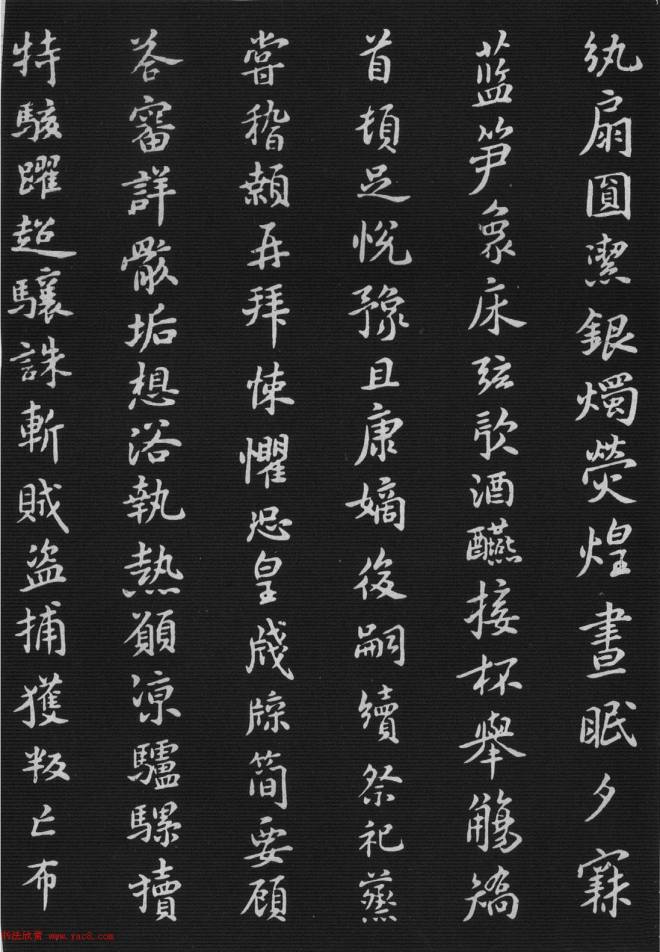 紈扇圓潔銀燭熒煌晝眠夕寐
藍笋象床弦歌酒醼接杯舉觴矯
首頓足悅豫且康嫡後嗣續祭祀蒸
嘗稽顙再拜悚懼恐皇牋牒簡要顧
荅審詳骸垢想浴執熱願凉驢騾犢
特駭躍超驤誅斬賊盜捕獲叛亡布
书法欣赏 www.yac8.com